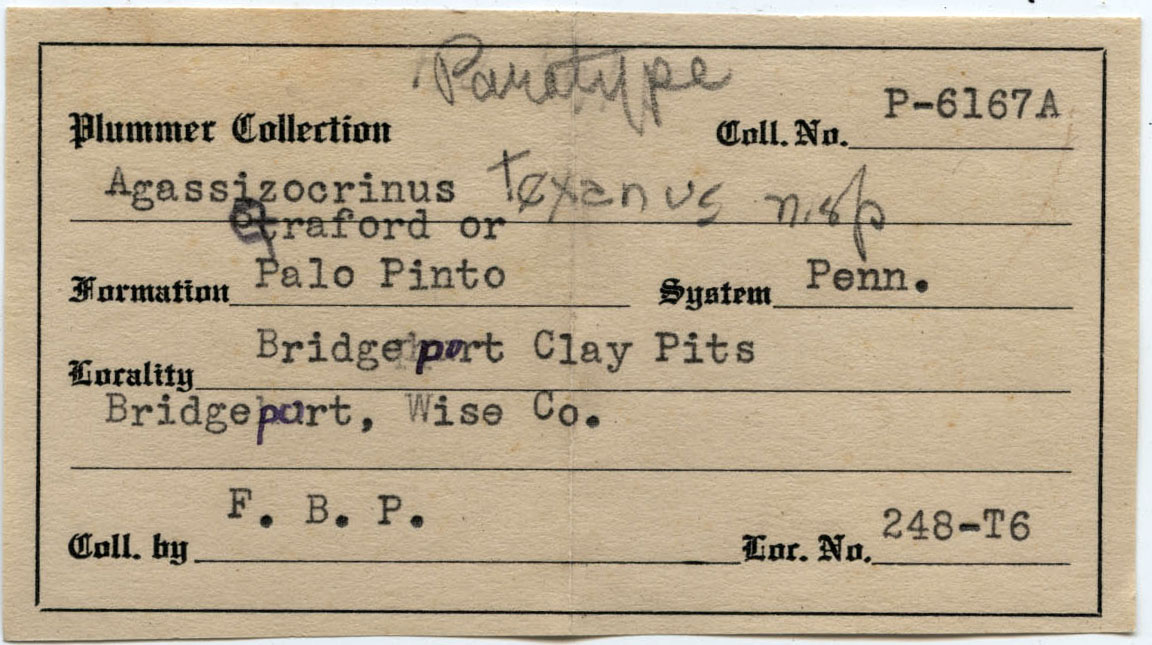 Paratype
Plummer Collection Coll. No. P-6167A
Agassizocrinus texanus n.sp
Graford or
Formation Palo Pinto System Penn.
Locality Bridgeport Clay Pits
Bridgeport, Wise Co.
Coll. by F. B. P. Loc. No. 248-T6